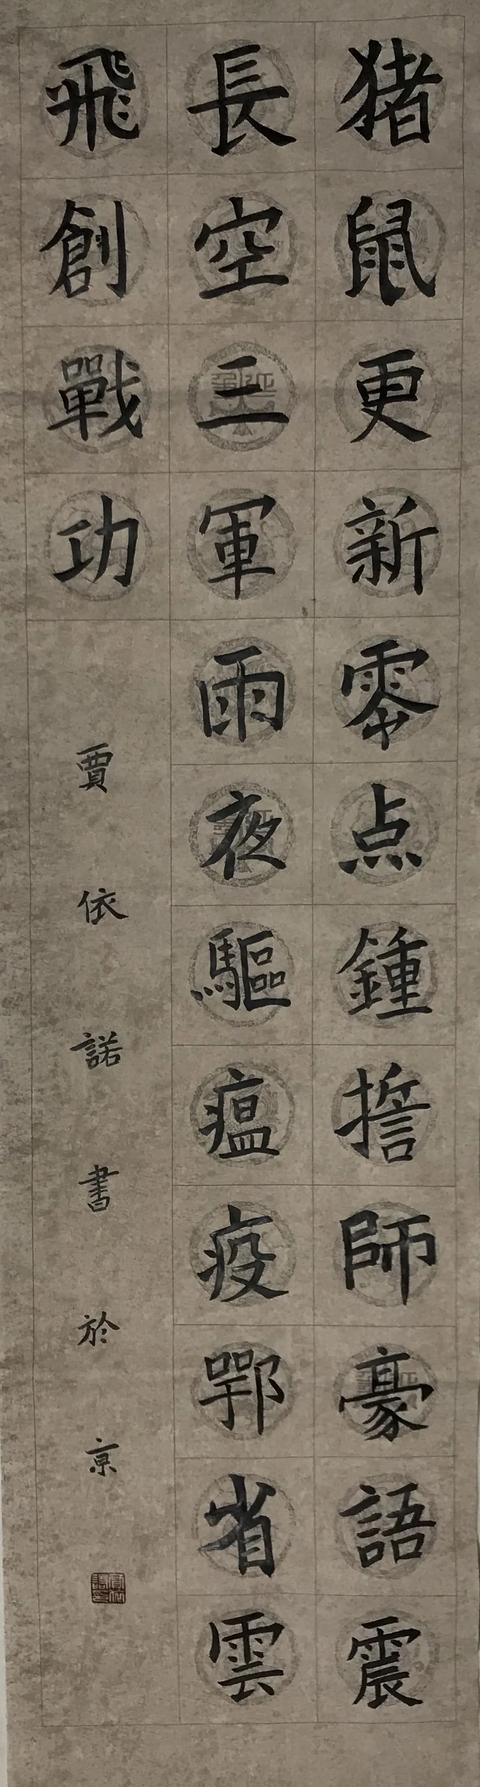 猪鼠更新零点鍾誓師豪語震
長空三軍雨夜驅瘟疫鄂省雲
飛創戰功
賈依諾書於京